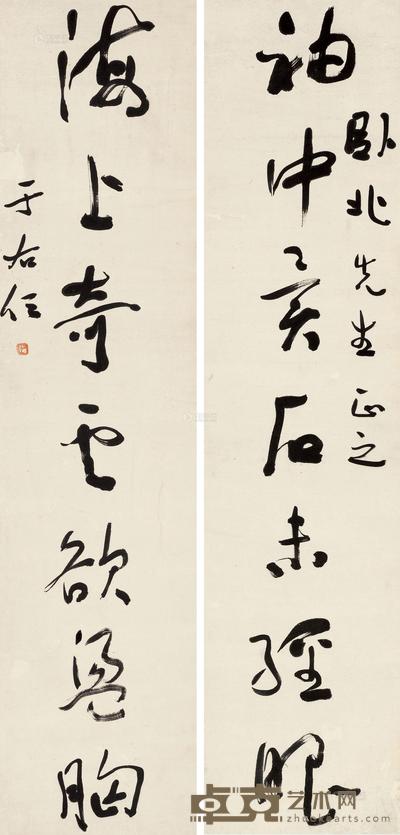 袖中異石未經眼
先生正之
海上奇云欲盪胸
于右任
卓克艺术网